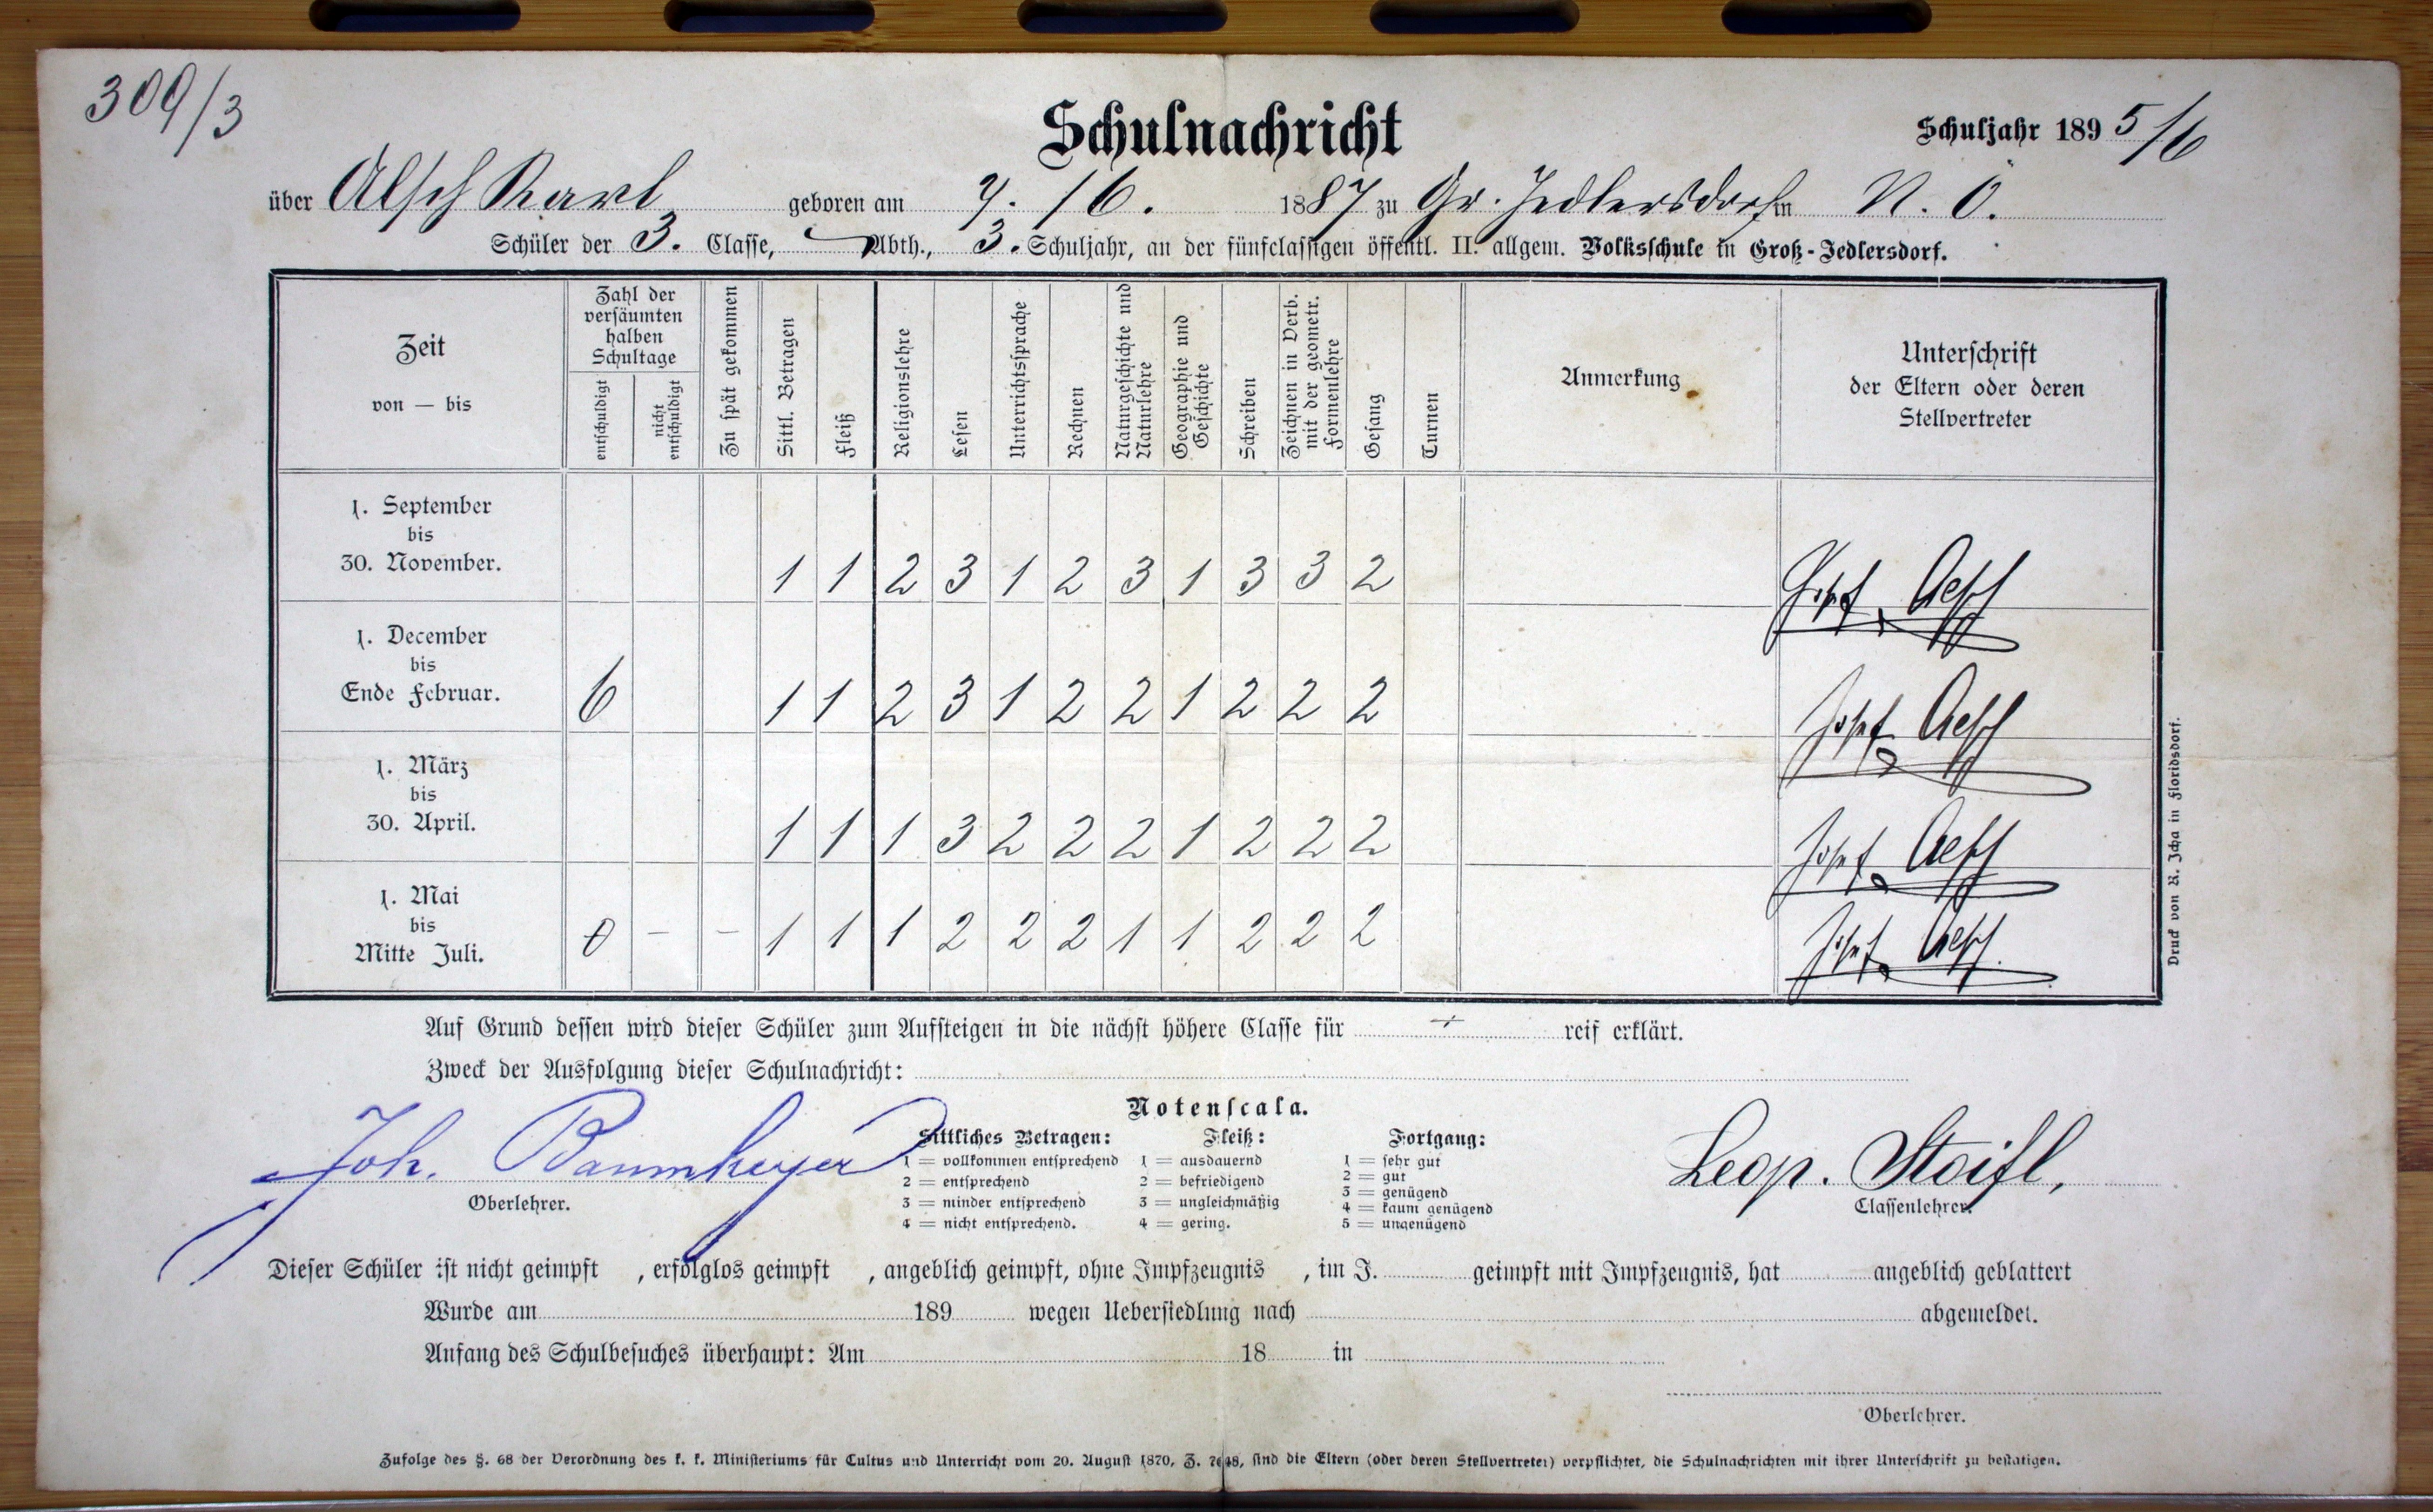 309/3
Schulnachricht
Schuljahr 1895/6
über Alsch Karl geboren am 7./6. 1887 zu Gr. Jedlersdorf in N. Ö.
Schüler der 3. Classe, — Abth., 3. Schuljahr, an der fünfclassigen öffentl. II. allgem. Volksschule in Groß-Jedlersdorf.
Zeit
von — bis
Zahl der versäumten halben Schultage
entschuldigt
nicht entschuldigt
Zu spät gekommen
Sittl. Betragen
Fleiß
Religionslehre
Lesen
Unterrichtssprache
Rechnen
Naturgeschichte und Naturlehre
Geographie und Geschichte
Schreiben
Zeichnen in Verb. mit der geometr. Formenlehre
Gesang
Turnen
Anmerkung
Unterschrift
der Eltern oder deren
Stellvertreter
1. September bis 30. November. 1 1 2 3 1 2 3 1 3 3 2 Josef
1. December bis Ende Februar. 6 1 1 2 3 1 2 2 1 2 2 2 Josef
1. März bis 30. April. 1 1 1 3 2 2 2 1 2 2 2 Josef
1. Mai bis Mitte Juli. 0 — — 1 1 1 2 2 2 1 1 2 2 2 Josef
Druck von K. Icha in Floridsdorf.
Auf Grund dessen wird dieser Schüler zum Aufsteigen in die nächst höhere Classe für reif erklärt.
Zweck der Ausfolgung dieser Schulnachricht:
Joh. Baumheyer
Oberlehrer.
Notenscala.
Sittliches Betragen:
1 = vollkommen entsprechend
2 = entsprechend
3 = minder entsprechend
4 = nicht entsprechend.
Fleiß:
1 = ausdauernd
2 = befriedigend
3 = ungleichmäßig
4 = gering.
Fortgang:
1 = sehr gut
2 = gut
3 = genügend
4 = kaum genügend
5 = ungenügend
Leop. Stoifl,
Classenlehrer.
Dieser Schüler ist nicht geimpft , erfolglos geimpft , angeblich geimpft, ohne Impfzeugnis , im J. geimpft mit Impfzeugnis, hat angeblich geblattert
Wurde am 189 wegen Uebersiedlung nach abgemeldet.
Anfang des Schulbesuches überhaupt: Am 18 in
Oberlehrer.
Zufolge des §. 68 der Verordnung des k. k. Ministeriums für Cultus und Unterricht vom 20. August 1870, Z. 7648, sind die Eltern (oder deren Stellvertreter) verpflichtet, die Schulnachrichten mit ihrer Unterschrift zu bestätigen.